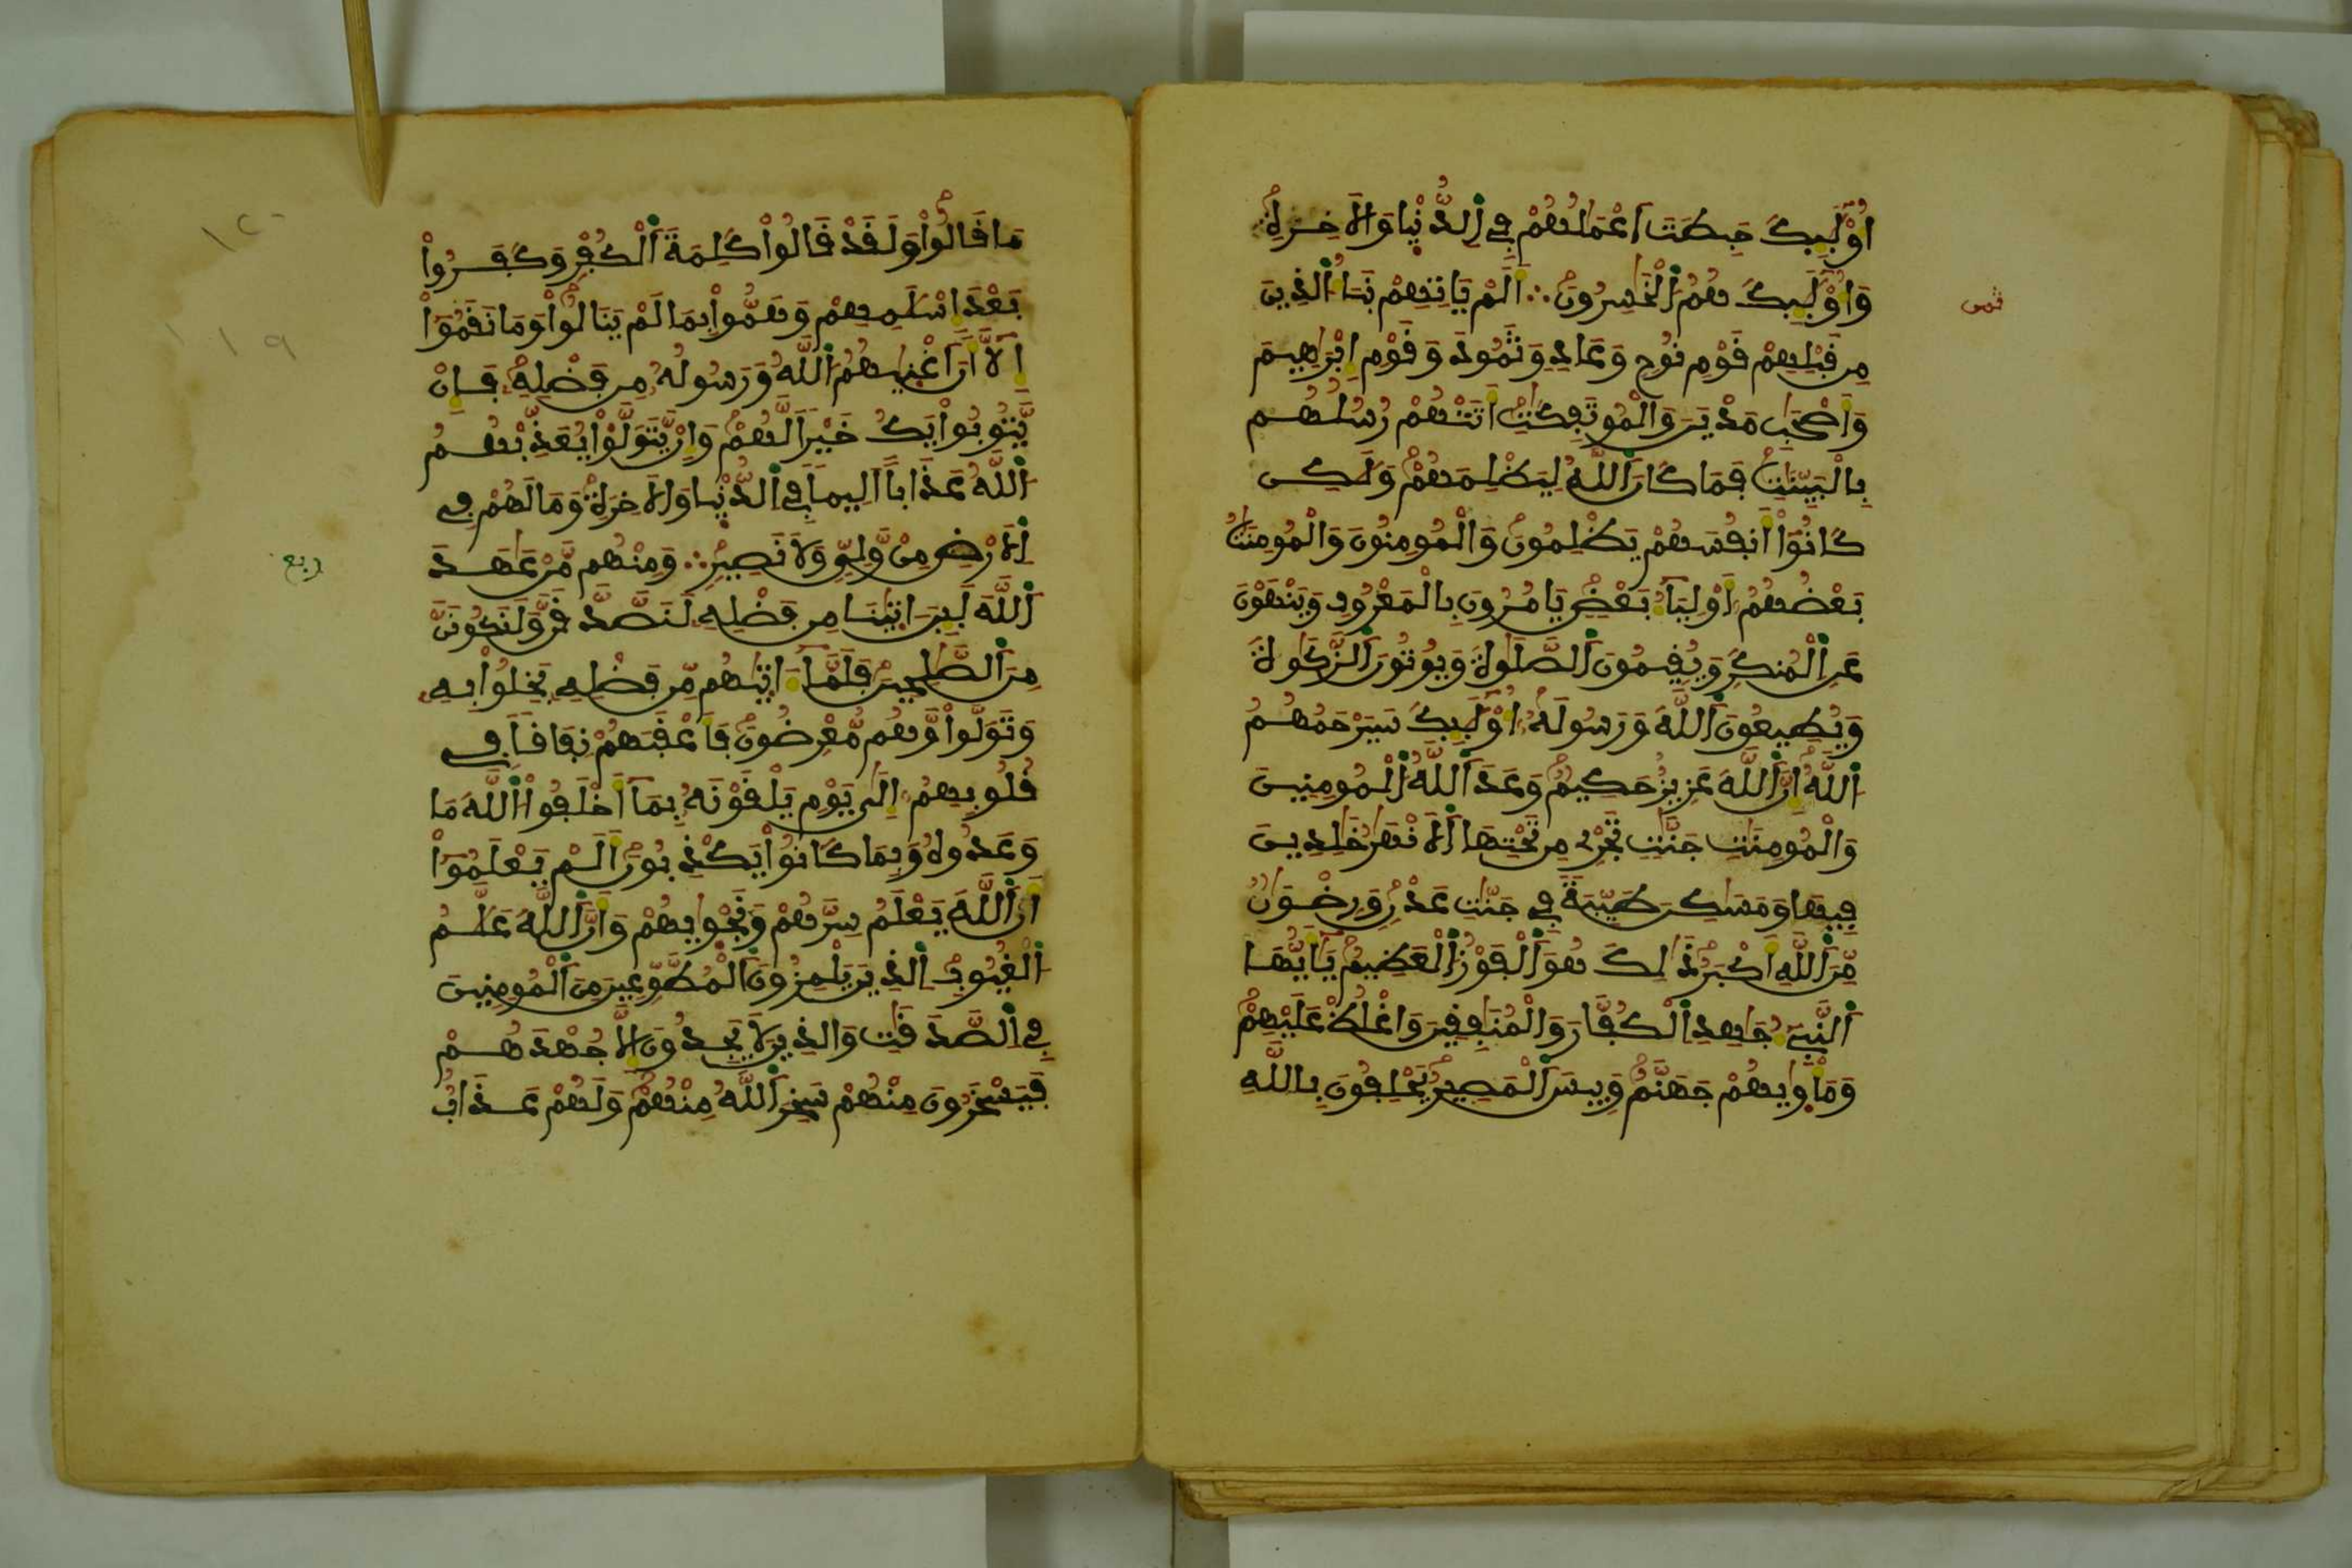 اُوْلَٰٓئِكَ حَبِطَتَ اَعْمَٰلُهُمْ فِے اِ۬لدُّنْي۪ا وَالَاخِرَةِۖ
وَأُوْلَٰٓئِكَ هُمُ اُ۬لْخَٰسِرُونَۖ ۞ اَلَمْ يَاتِهِمْ نَبَأُ اُ۬لذِينَ
ثمن
مِن قَبْلِهِمْ قَوْمِ نُوحٖ وَعَادٖ وَثَمُودَ وَقَوْمِ إِبْرَٰهِيمَ
وَأَصْحَٰبِ مَدْيَنَ وَالْمُوتَفِكَٰتِۖ أَتَتْهُمْ رُسُلُهُم
بِالْبَيِّنَٰتِۖ فَمَا كَانَ اَ۬للَّهُ لِيَظْلِمَهُمْۖ وَلَٰكِن
كَانُوٓاْ أَنفُسَهُمْ يَظْلِمُونَۖ وَالْمُومِنُونَ وَالْمُومِنَٰتُ
بَعْضُهُمُۥٓ أَوْلِيَآءُ بَعْضٖۖ يَامُرُونَ بِالْمَعْرُوفِ وَيَنْهَوْنَ
عَنِ اِ۬لْمُنكَرِ وَيُقِيمُونَ اَ۬لصَّلَوٰةَ وَيُوتُونَ اَ۬لزَّكَوٰةَ
وَيُطِيعُونَ اَ۬للَّهَ وَرَسُولَهُۥٓۖ أُوْلَٰٓئِكَ سَيَرْحَمُهُمُ
اُ۬للَّهُۖ إِنَّ اَ۬للَّهَ عَزِيزٌ حَكِيمٞۖ وَعَدَ اَ۬للَّهُ اُ۬لْمُومِنِينَ
وَالْمُومِنَٰتِ جَنَّٰتٖ تَجْرِے مِن تَحْتِهَا اَ۬لَانْهَٰرُ خَٰلِدِينَ
فِيهَا وَمَسَٰكِنَ طَيِّبَةٗ فِے جَنَّٰتِ عَدْنٖۖ وَرِضْوَٰنٞ
مِّنَ اَ۬للَّهِ أَكْبَرُۖ ذَٰلِكَ هُوَ اَ۬لْفَوْزُ اُ۬لْعَظِيمُۖ يَٰٓأَيُّهَا
اَ۬لنَّبِےٓءُ جَٰهِدِ اِ۬لْكُفَّارَ وَالْمُنَٰفِقِينَ وَاغْلُظْ عَلَيْهِمْۖ
وَمَأْو۪يٰهُمْ جَهَنَّمُۖ وَبِيسَ اَ۬لْمَصِيرُۖ يَحْلِفُونَ بِاللَّهِ
١٢٠
١١٩
مَا قَالُواْۖ وَلَقَدْ قَالُواْ كَلِمَةَ اَ۬لْكُفْرِ وَكَفَرُواْ
بَعْدَ إِسْلَٰمِهِمْ وَهَمُّواْ بِمَا لَمْ يَنَالُواْۖ وَمَا نَقَمُوٓاْ
إِلَّآ أَنَ اَغْن۪يٰهُمُ اُ۬للَّهُ وَرَسُولُهُۥ مِن فَضْلِهِۦۖ فَإِنْ
يَّتُوبُواْ يَكُ خَيْراٗ لَّهُمْۖ وَإِنْ يَّتَوَلَّوْاْ يُعَذِّبْهُمُ
اُ۬للَّهُ عَذَاباً اَلِيماٗ فِے اِ۬لدُّنْي۪ا وَالَاخِرَةِۖ وَمَا لَهُمْ فِے
اِ۬لَارْضِ مِنْ وَّلِيّٖ وَلَا نَصِيرٖۖ ۞ وَمِنْهُم مَّنْ عَٰهَدَ
ربع
اَ۬للَّهَ لَئِنَ اٰت۪يٰنَا مِن فَضْلِهِۦ لَنَصَّدَّقَنَّ وَلَنَكُونَنَّ
مِنَ اَ۬لصَّٰلِحِينَۖ فَلَمَّآ ءَات۪يٰهُم مِّن فَضْلِهِۦ بَخِلُواْ بِهِۦ
وَتَوَلَّواْ وَّهُم مُّعْرِضُونَۖ فَأَعْقَبَهُمْ نِفَاقاٗ فِے
قُلُوبِهِمُۥٓ إِلَىٰ يَوْمِ يَلْقَوْنَهُۥ بِمَآ أَخْلَفُواْ اُ۬للَّهَ مَا
وَعَدُوهُ وَبِمَا كَانُواْ يَكْذِبُونَۖ أَلَمْ يَعْلَمُوٓاْ
أَنَّ اَ۬للَّهَ يَعْلَمُ سِرَّهُمْ وَنَجْو۪يٰهُمْ وَأَنَّ اَ۬للَّهَ عَلَّٰمُ
اُ۬لْغُيُوبِۖ اِ۬لذِينَ يَلْمِزُونَ اَ۬لْمُطَّوِّعِينَ مِنَ اَ۬لْمُومِنِينَ
فِے اِ۬لصَّدَقَٰتِ وَالذِينَ لَا يَجِدُونَ إِلَّا جُهْدَهُمْ
فَيَسْخَرُونَ مِنْهُمْ سَخِرَ اَ۬للَّهُ مِنْهُمْۖ وَلَهُمْ عَذَابٌ